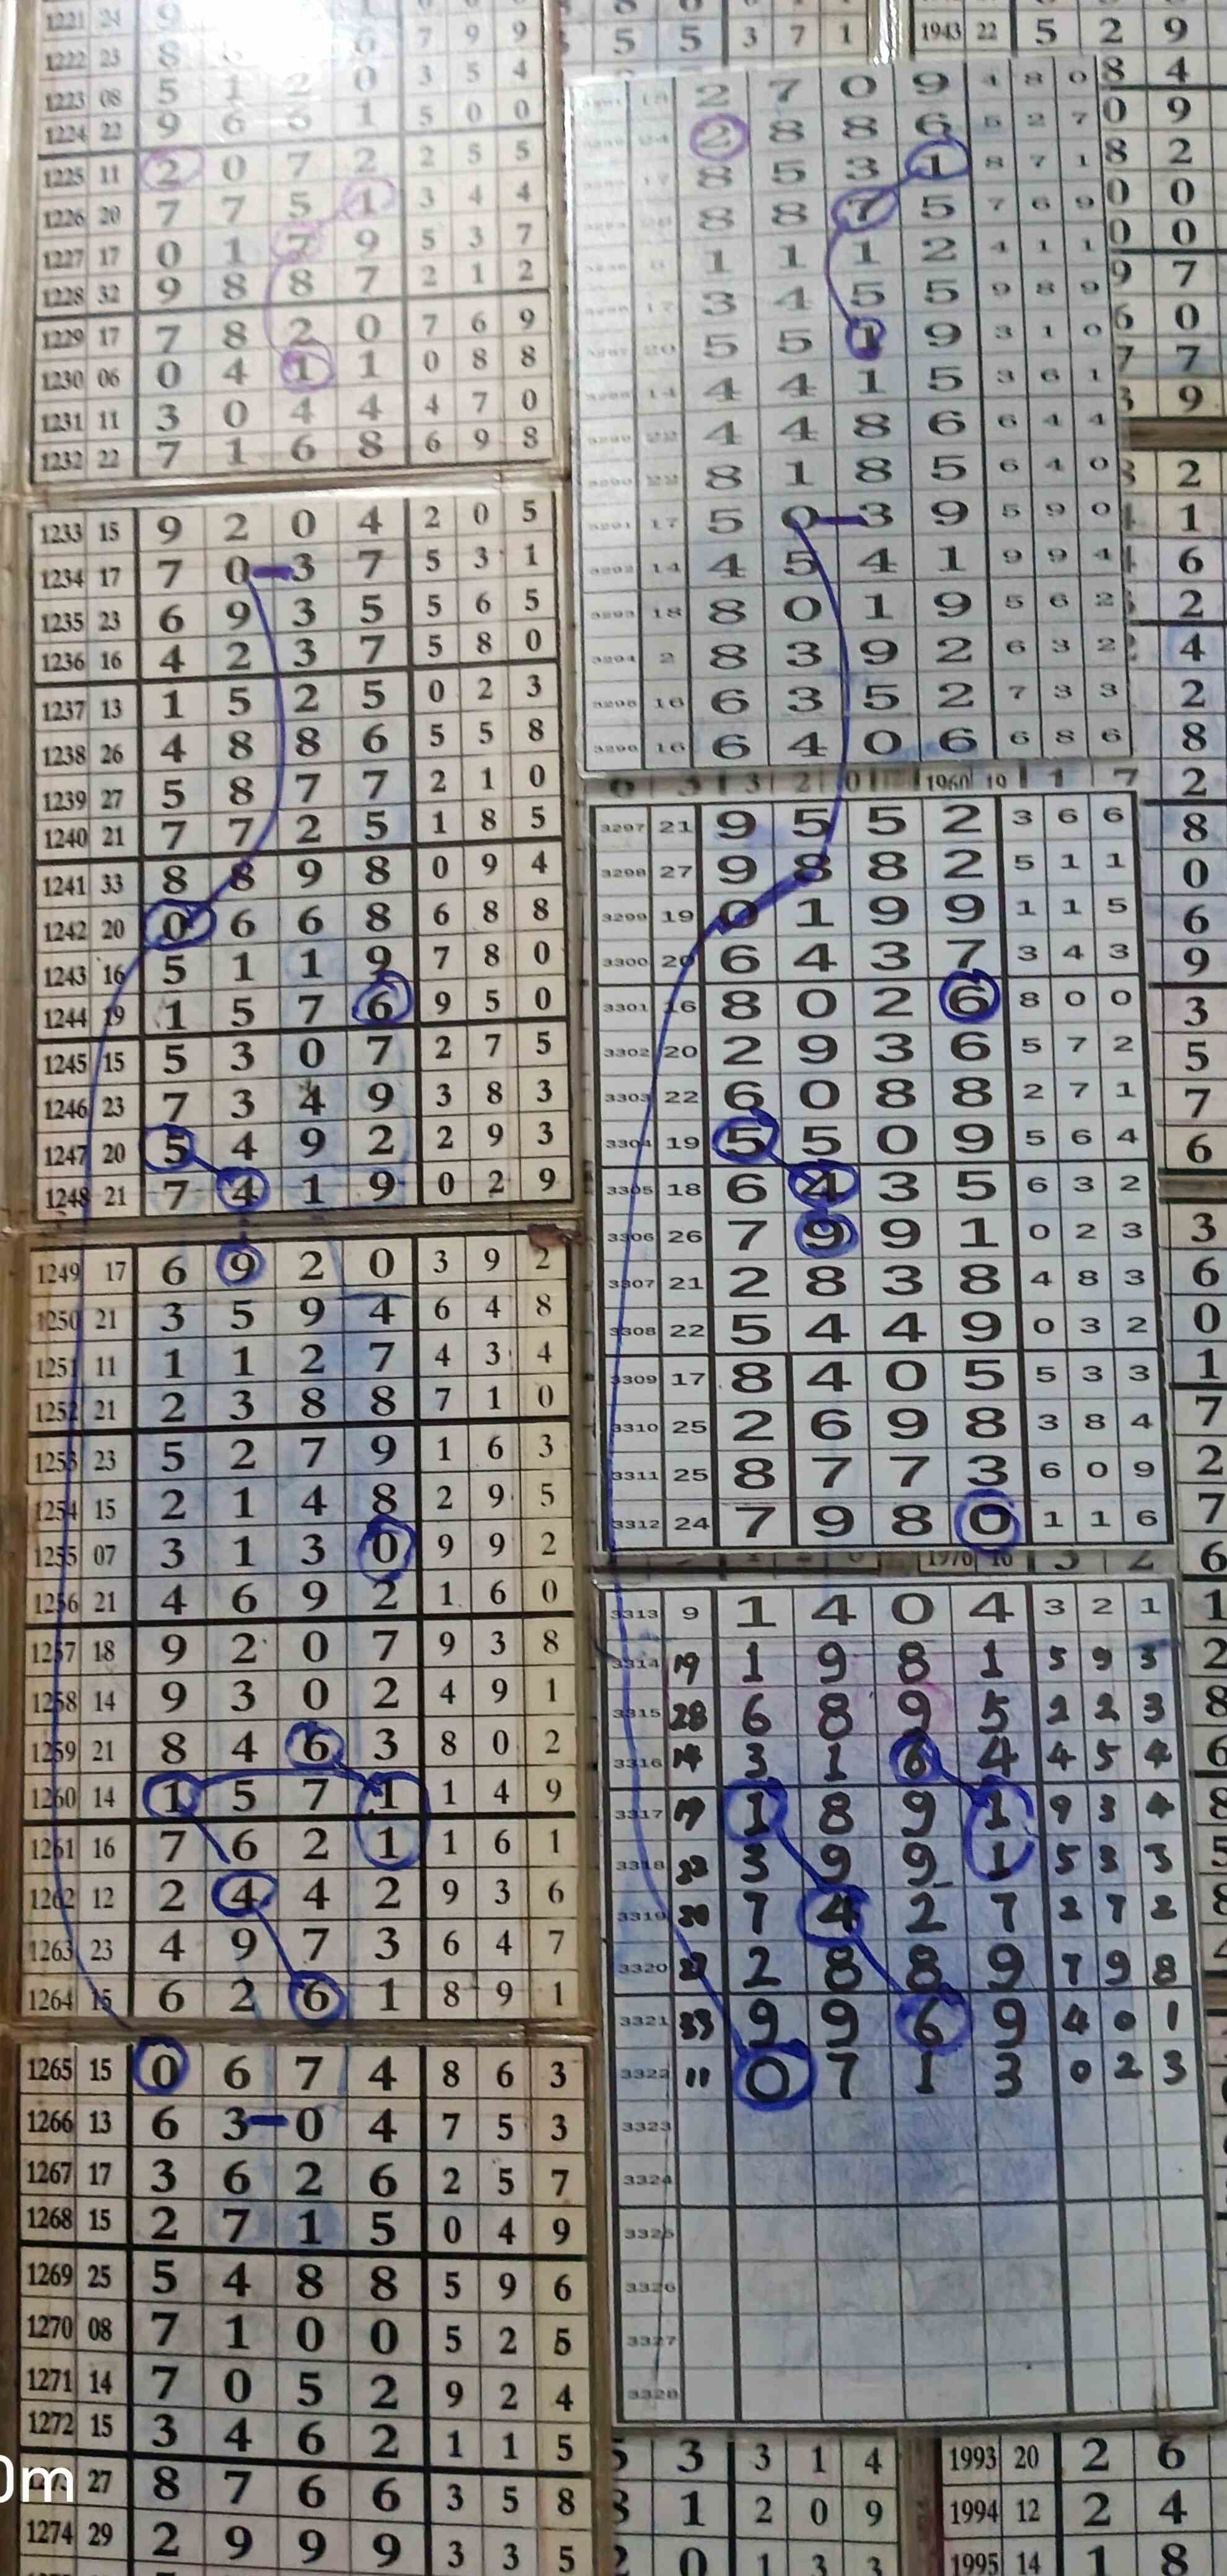 1221 24 9
1222 23 8 6 7 9 9
1223 08 5 1 2 0 3 5 4
1224 22 9 6 6 1 5 0 0
1225 11 2 0 7 2 2 5 5
1226 20 7 7 5 1 3 4 4
1227 17 0 1 7 9 5 3 7
1228 32 9 8 8 7 2 1 2
1229 17 7 8 2 0 7 6 9
1230 06 0 4 1 1 0 8 8
1231 11 3 0 4 4 4 7 0
1232 22 7 1 6 8 6 9 8
1233 15 9 2 0 4 2 0 5
1234 17 7 0 3 7 5 3 1
1235 23 6 9 3 5 5 6 5
1236 16 4 2 3 7 5 8 0
1237 13 1 5 2 5 0 2 3
1238 26 4 8 8 6 5 5 8
1239 27 5 8 7 7 2 1 0
1240 21 7 7 2 5 1 8 5
1241 33 8 8 9 8 0 9 4
1242 20 0 6 6 8 6 8 8
1243 16 5 1 1 9 7 8 0
1244 19 1 5 7 6 9 5 0
1245 15 5 3 0 7 2 7 5
1246 23 7 3 4 9 3 8 3
1247 20 5 4 9 2 2 9 3
1248 21 7 4 1 9 0 2 9
1249 17 6 9 2 0 3 9 2
1250 21 3 5 9 4 6 4 8
1251 11 1 1 2 7 4 3 4
1252 21 2 3 8 8 7 1 0
1253 23 5 2 7 9 1 6 3
1254 15 2 1 4 8 2 9 5
1255 07 3 1 3 0 9 9 2
1256 21 4 6 9 2 1 6 0
1257 18 9 2 0 7 9 3 8
1258 14 9 3 0 2 4 9 1
1259 21 8 4 6 3 8 0 2
1260 14 1 5 7 1 1 4 9
1261 16 7 6 2 1 1 6 1
1262 12 2 4 4 2 9 3 6
1263 23 4 9 7 3 6 4 7
1264 15 6 2 6 1 8 9 1
1265 15 0 6 7 4 8 6 3
1266 13 6 3 0 4 7 5 3
1267 17 3 6 2 6 2 5 7
1268 15 2 7 1 5 0 4 9
1269 25 5 4 8 8 5 9 6
1270 08 7 1 0 0 5 2 5
1271 14 7 0 5 2 9 2 4
1272 15 3 4 6 2 1 1 5
27 8 7 6 6 3 5 8
1274 29 2 9 9 9 3 3 5
0m
5 5 3 7 1
1943 22 5 2 9
18 2 7 0 9 4 8 0
24 2 8 8 6 5 2 7
17 8 5 3 1 8 7 1
8 8 7 5 7 6 9
1 1 1 2 4 1 1
17 3 4 5 5 9 8 9
20 5 5 1 9 3 1 0
14 4 4 1 5 3 6 1
22 4 4 8 6 6 4 4
22 8 1 8 5 6 4 0
3291 17 5 0 3 9 5 9 0
3292 14 4 5 4 1 9 9 4
3293 18 8 0 1 9 5 6 2
3294 2 8 3 9 2 6 3 2
3295 16 6 3 5 2 7 3 3
3296 16 6 4 0 6 6 8 6
1960 19 1 7
3297 21 9 5 5 2 3 6 6
3298 27 9 8 8 2 5 1 1
3299 19 0 1 9 9 1 1 5
3300 20 6 4 3 7 3 4 3
3301 16 8 0 2 6 8 0 0
3302 20 2 9 3 6 5 7 2
3303 22 6 0 8 8 2 7 1
3304 19 5 5 0 9 5 6 4
3305 18 6 4 3 5 6 3 2
3306 26 7 9 9 1 0 2 3
3307 21 2 8 3 8 4 8 3
3308 22 5 4 4 9 0 3 2
3309 17 8 4 0 5 5 3 3
3310 25 2 6 9 8 3 8 4
3311 25 8 7 7 3 6 0 9
3312 24 7 9 8 0 1 1 6
3313 9 1 4 0 4 3 2 1
3314 19 1 9 8 1 5 9 3
3315 28 6 8 9 5 2 2 3
3316 14 3 1 6 4 4 5 4
3317 19 1 8 9 1 9 3 4
3318 3 9 9 1 5 3 3
3319 20 7 4 2 7 2 7 2
3320 27 2 8 8 9 7 9 8
3321 33 9 9 6 9 4 0 1
3322 11 0 7 1 3 0 2 3
3323
3324
3325
3326
3327
3328
3 3 1 4
1993 20 2 6
1 2 0 9
1994 12 2 4
0 1 3 3
1995 14 1 8
8 4
0 9
8 2
0 0
0 0
9 7
6 0
7 7
9
2
1
6
2
4
2
8
2
8
0
6
9
3
5
7
6
3
6
0
1
7
2
7
6